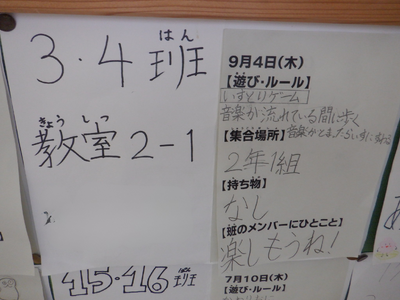 はん
3・4班
きょうしつ
教室2-1
9月4日(木)
【遊び・ルール】
いすとりゲーム
音楽が流れている間に歩く
【集合場所】音楽がとまったらいすにすわる
2年1組
【持ち物】
なし
【班のメンバーにひとこと】
楽しもうね!
15・16班
7月10日(木)
【遊び・ルール】